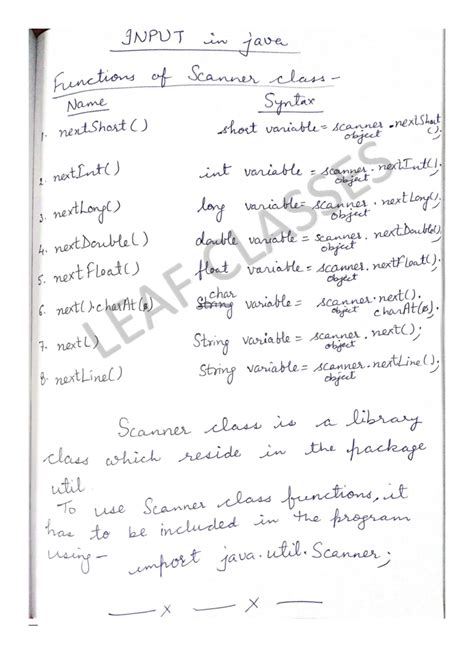 INPUT in java
Functions of Scanner class -
Name Syntax
1. nextShort() short variable = scanner.nextShort
object ();
2. nextInt() int variable = scanner.nextInt();
object
3. nextLong() long variable = scanner.nextLong();
object
4. nextDouble() double variable = scanner.nextDouble();
object
5. nextFloat() float variable = scanner.nextFloat();
object
char
6. next().charAt(0) String variable = scanner.next().
object charAt(0);
7. next() String variable = scanner.next();
object
8. nextLine() String variable = scanner.nextLine();
object
LEAF CLASSES
Scanner class is a library
class which reside in the package
util.
To use Scanner class functions, it
has to be included in the program
using-
import java.util.Scanner;
— x — x —